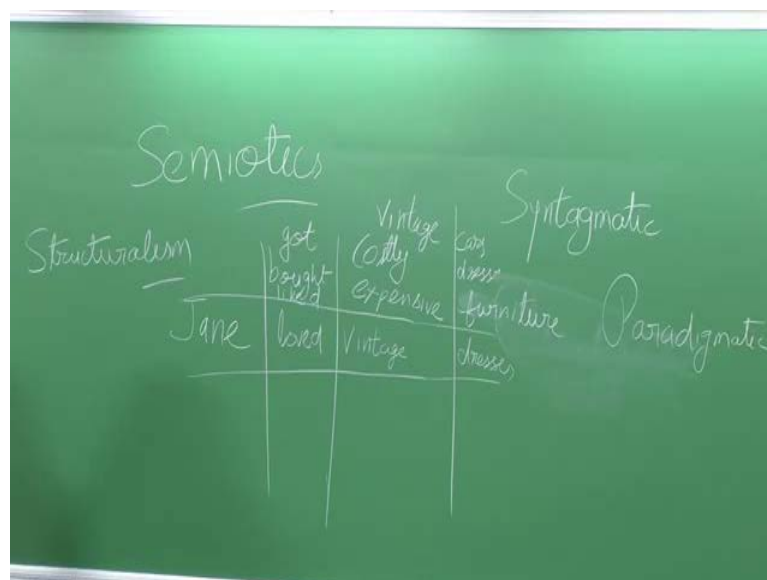 Semiotics
Structuralism
Syntagmatic
Paradigmatic
got
bought
liked
vintage
Costly
expensive
cars
dresses
furniture
Jane loved vintage dresses